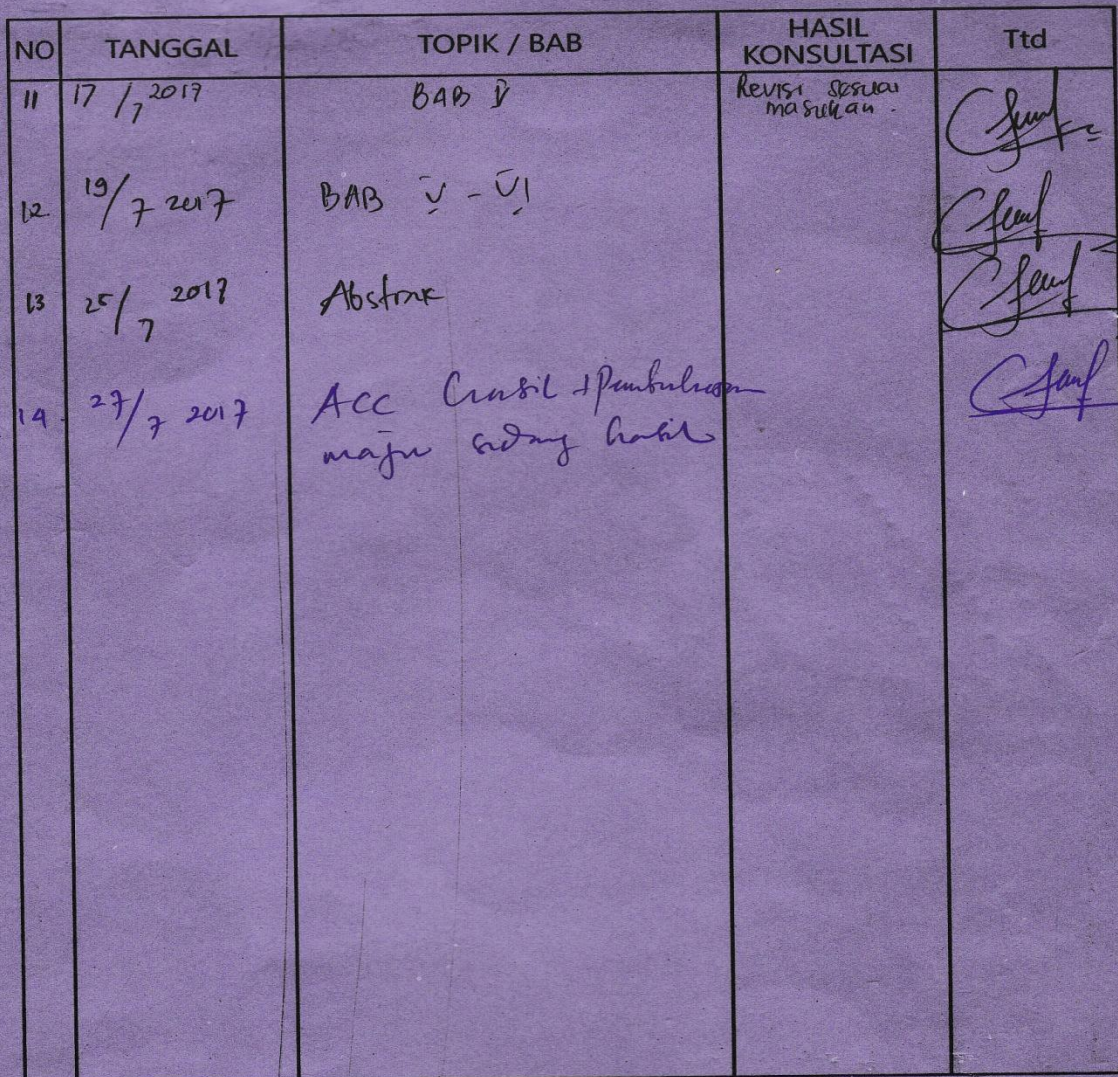 NO TANGGAL TOPIK / BAB HASIL KONSULTASI Ttd
11 17/7 2017 BAB V Revisi sesuai
masukan.
12. 19/7 2017 BAB V - VI
13 25/7 2017 Abstrak
14. 27/7 2017 ACC hasil + Pembahasan
maju sidang hasil